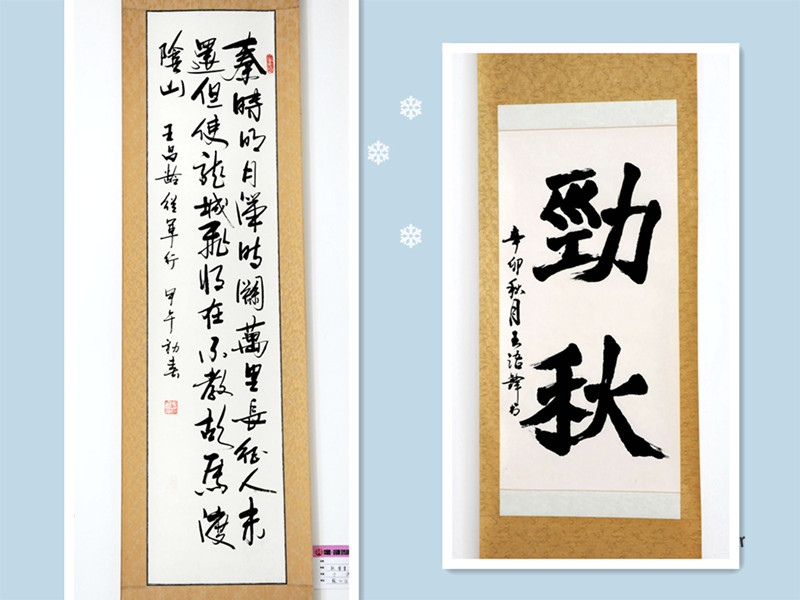 秦時明月漢時關萬里長征人未
還但使龍城飛將在不教胡馬渡
陰山 王昌齡從軍行 甲午初春
勁秋
辛卯秋月